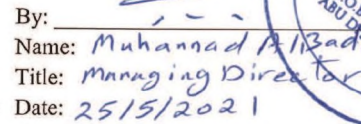 By:
Name: Muhannad AlBad
Title: Managing Director
Date: 25/5/2021
ABU D